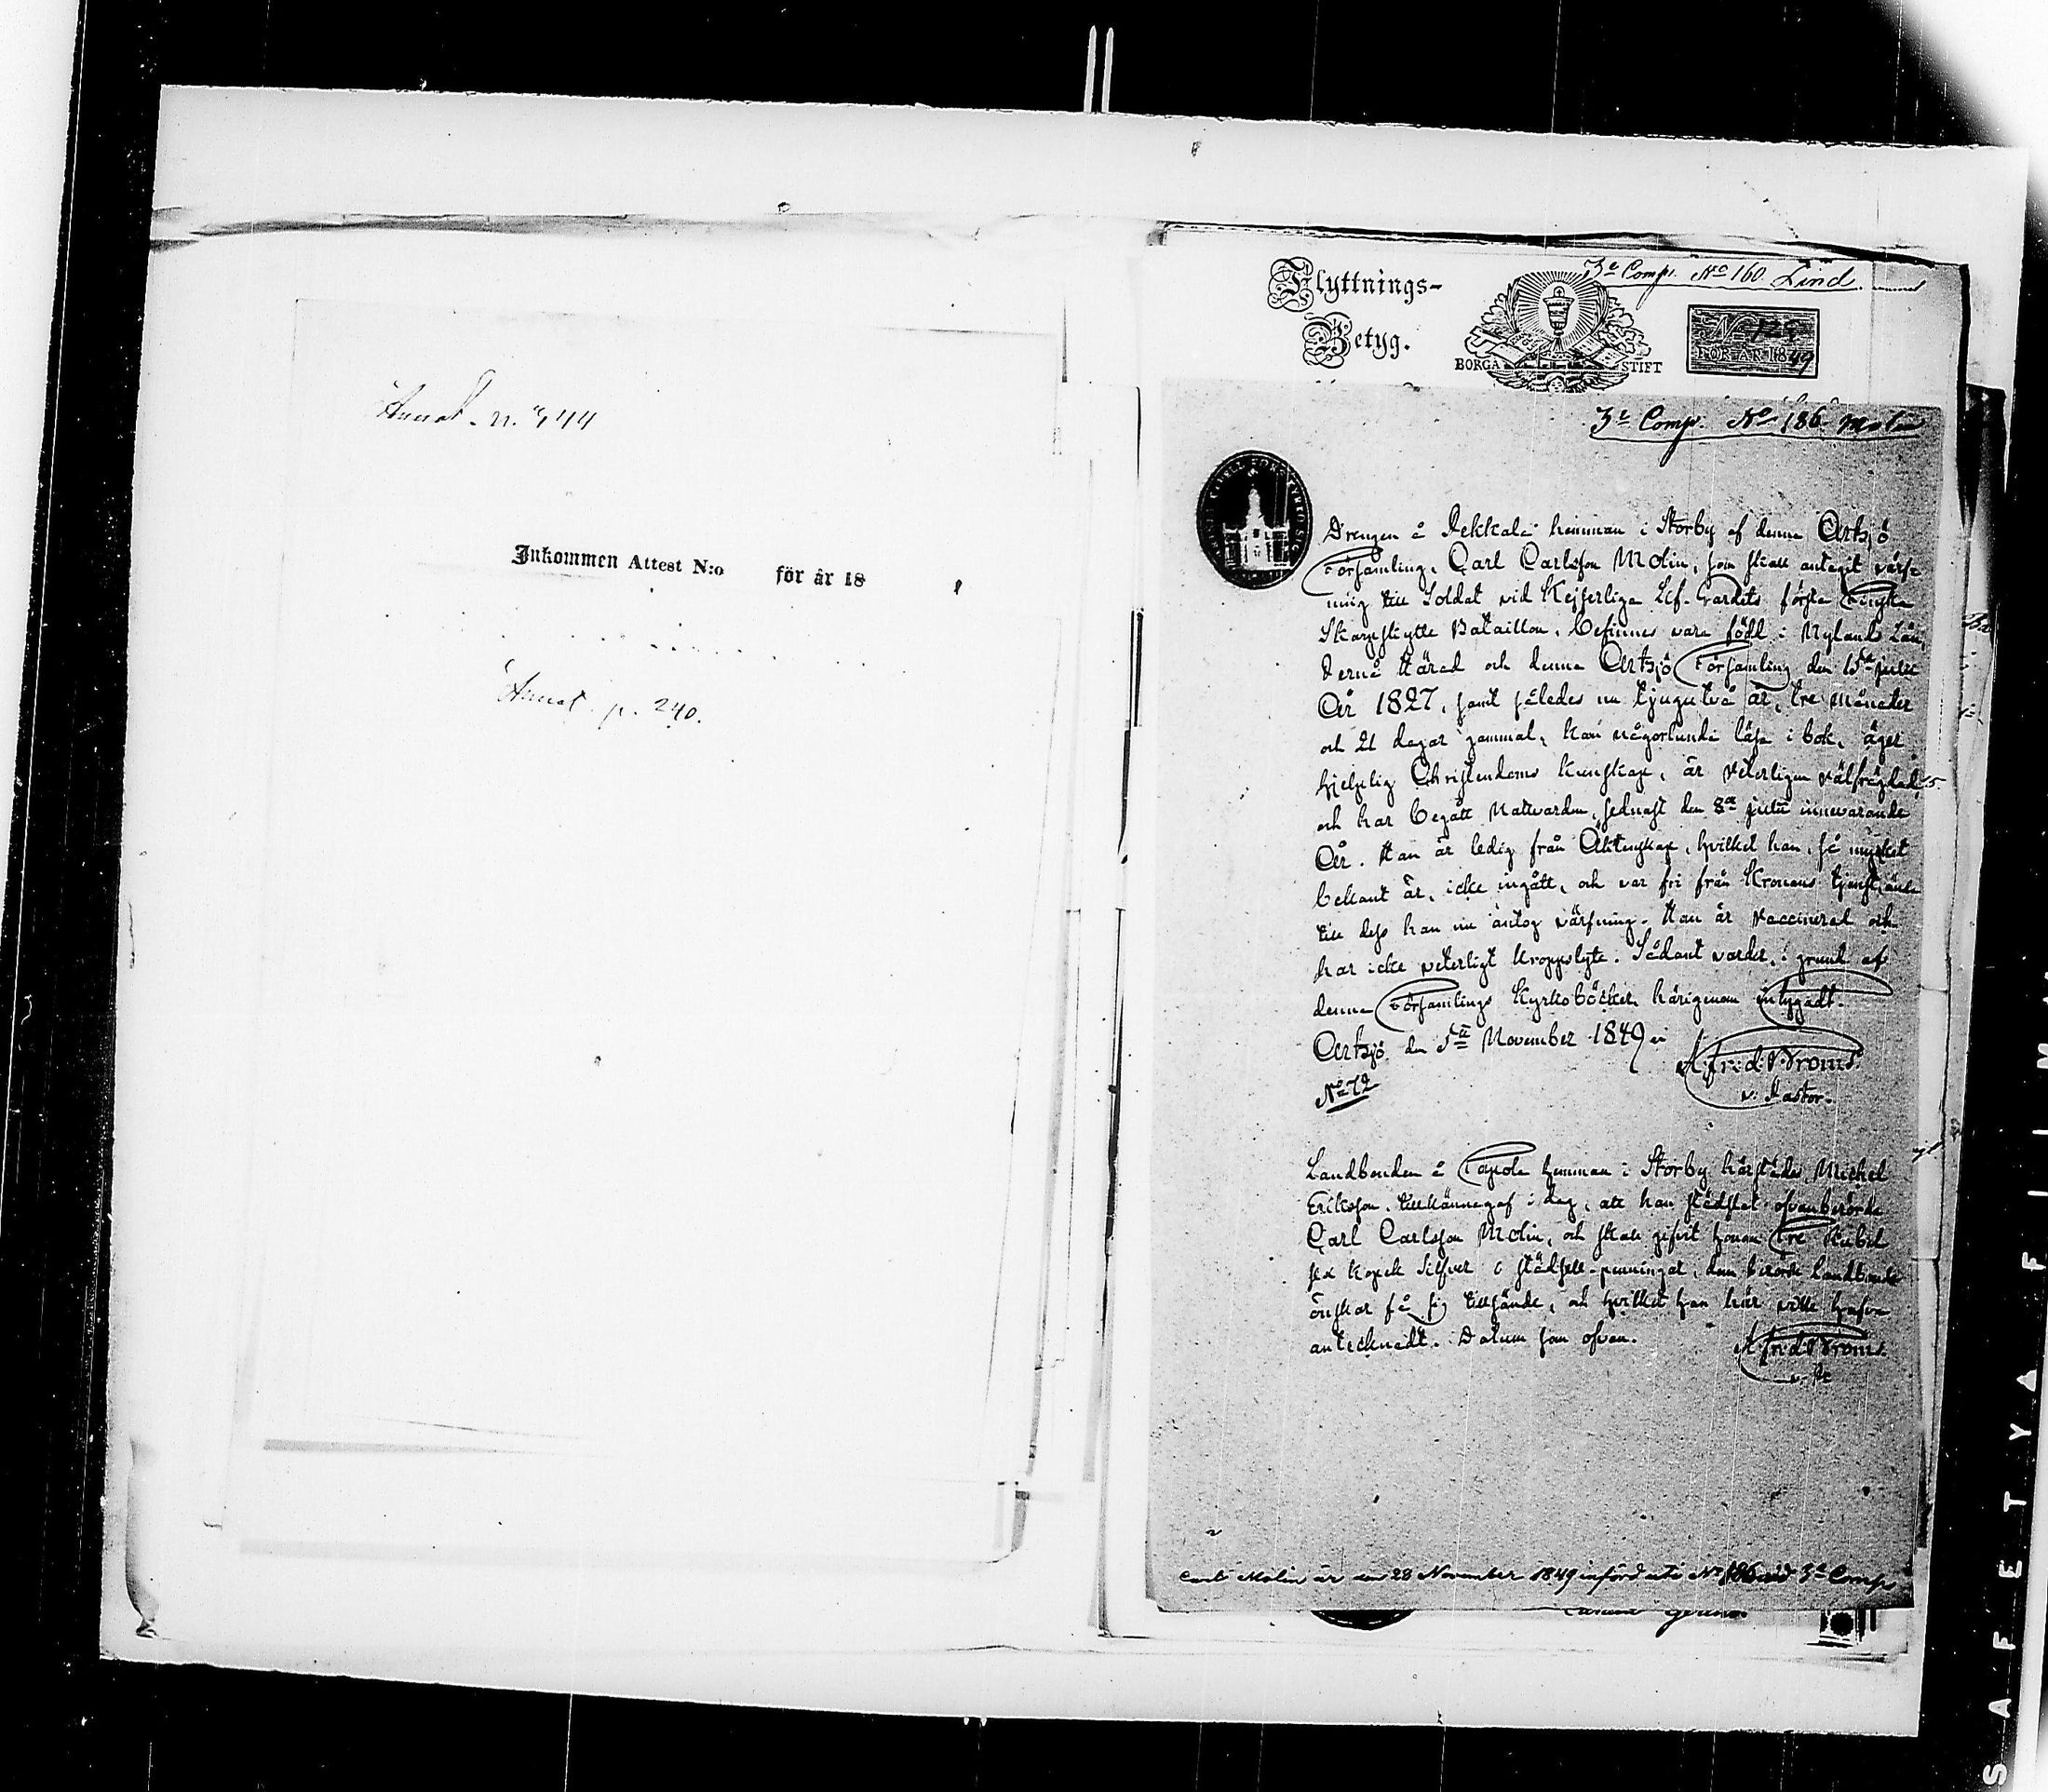 Annot. n. 444
Inkommen Attest N:o för år 18
Annot. p. 240.
Flyttnings-
Betyg.
3e Comp. No 160 Lind
BORGA STIFT
FÖR ÅR 1849
3e Comp. No 186 Molin
Drengen å Pekkala hemman i Storby af denna Artsjö
Församling, Carl Carlsson Molin, som skall antagit värf-
ning till Soldat vid Kejserliga Lif-Gardets förste Finska
Skarpskytte Bataillon, befinnes vara född i Nylands Län,
Pernå Härad och denna Artsjö Församling den 15de Julii
År 1827, samt således nu tjugutvå år, tre månader
och 21 dagar gammal, kan någorlunda läsa i bok, äger
hjelplig Christendoms kunskap, är veterligen välfrägdad,
och har begått Nattvarden sednast den 8de Julii innevarande
År. Han är ledig från Äktenskap, hvilket han, så mycket
bekant är, icke ingått, och var fri från Kronans tjenst ända
till dess han nu antog värfning. Han är vaccinerad och
har icke veterligt kroppslyte. Sådant varder, i grund af
denna Församlings Kyrkoböcker härigenom intygadt.
Artsjö den 5te November 1849
Alfrid
No 72
v. Pastor.
Landbonden å Papola hemman i Storby härstädes Michel
Eriksson, tillkännagaf i dag, att han städslat ofvanberörde
Carl Carlsson Molin, och skall gifvit honom Tre Rubel
sex kopek Silfver i städsel-penningar, dem berörde landbonde
önskar få sig tillsände, och hvilket han här ville hafva
antecknadt. Datum som ofvan.
Alfrid
v. Pr
Carl Molin är den 28 November 1849 införd uti No 186 vid 3e Comp
SAFETY FILM